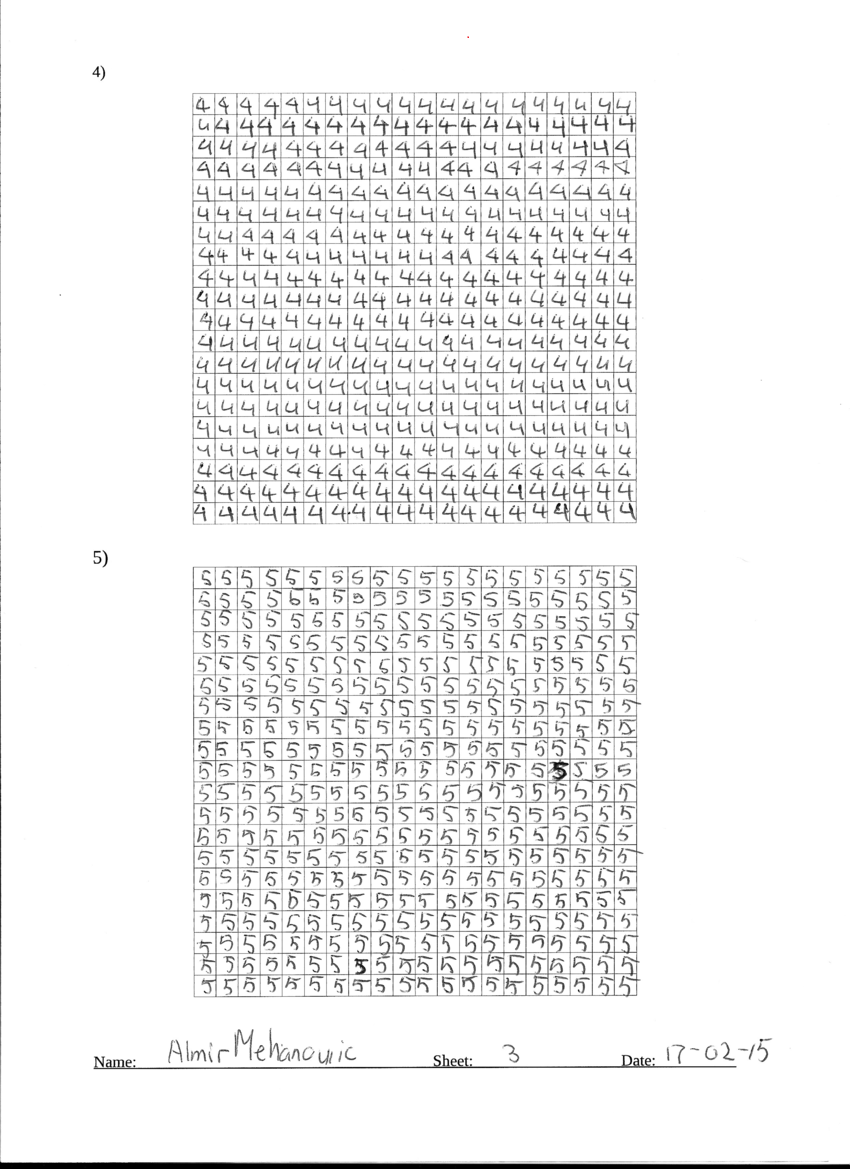 4)
4 4 4 4 4 4 4 4 4 4 4 4 4 4 4 4 4 4 4 4
4 4 4 4 4 4 4 4 4 4 4 4 4 4 4 4 4 4 4 4
4 4 4 4 4 4 4 4 4 4 4 4 4 4 4 4 4 4 4 4
4 4 4 4 4 4 4 4 4 4 4 4 4 4 4 4 4 4 4 4
4 4 4 4 4 4 4 4 4 4 4 4 4 4 4 4 4 4 4 4
4 4 4 4 4 4 4 4 4 4 4 4 4 4 4 4 4 4 4 4
4 4 4 4 4 4 4 4 4 4 4 4 4 4 4 4 4 4 4 4
4 4 4 4 4 4 4 4 4 4 4 4 4 4 4 4 4 4 4 4
4 4 4 4 4 4 4 4 4 4 4 4 4 4 4 4 4 4 4 4
4 4 4 4 4 4 4 4 4 4 4 4 4 4 4 4 4 4 4 4
4 4 4 4 4 4 4 4 4 4 4 4 4 4 4 4 4 4 4 4
4 4 4 4 4 4 4 4 4 4 4 4 4 4 4 4 4 4 4 4
4 4 4 4 4 4 4 4 4 4 4 4 4 4 4 4 4 4 4 4
4 4 4 4 4 4 4 4 4 4 4 4 4 4 4 4 4 4 4 4
4 4 4 4 4 4 4 4 4 4 4 4 4 4 4 4 4 4 4 4
4 4 4 4 4 4 4 4 4 4 4 4 4 4 4 4 4 4 4 4
4 4 4 4 4 4 4 4 4 4 4 4 4 4 4 4 4 4 4 4
4 4 4 4 4 4 4 4 4 4 4 4 4 4 4 4 4 4 4 4
4 4 4 4 4 4 4 4 4 4 4 4 4 4 4 4 4 4 4 4
4 4 4 4 4 4 4 4 4 4 4 4 4 4 4 4 4 4 4 4
5)
5 5 5 5 5 5 5 5 5 5 5 5 5 5 5 5 5 5 5 5
5 5 5 5 5 5 5 5 5 5 5 5 5 5 5 5 5 5 5 5
5 5 5 5 5 5 5 5 5 5 5 5 5 5 5 5 5 5 5 5
5 5 5 5 5 5 5 5 5 5 5 5 5 5 5 5 5 5 5 5
5 5 5 5 5 5 5 5 5 5 5 5 5 5 5 5 5 5 5 5
5 5 5 5 5 5 5 5 5 5 5 5 5 5 5 5 5 5 5 5
5 5 5 5 5 5 5 5 5 5 5 5 5 5 5 5 5 5 5 5
5 5 5 5 5 5 5 5 5 5 5 5 5 5 5 5 5 5 5 5
5 5 5 5 5 5 5 5 5 5 5 5 5 5 5 5 5 5 5 5
5 5 5 5 5 5 5 5 5 5 5 5 5 5 5 5 5 5 5 5
5 5 5 5 5 5 5 5 5 5 5 5 5 5 5 5 5 5 5 5
5 5 5 5 5 5 5 5 5 5 5 5 5 5 5 5 5 5 5 5
5 5 5 5 5 5 5 5 5 5 5 5 5 5 5 5 5 5 5 5
5 5 5 5 5 5 5 5 5 5 5 5 5 5 5 5 5 5 5 5
5 5 5 5 5 5 5 5 5 5 5 5 5 5 5 5 5 5 5 5
5 5 5 5 5 5 5 5 5 5 5 5 5 5 5 5 5 5 5 5
5 5 5 5 5 5 5 5 5 5 5 5 5 5 5 5 5 5 5 5
5 5 5 5 5 5 5 5 5 5 5 5 5 5 5 5 5 5 5 5
5 5 5 5 5 5 5 5 5 5 5 5 5 5 5 5 5 5 5 5
5 5 5 5 5 5 5 5 5 5 5 5 5 5 5 5 5 5 5 5
Name: Almir Mehanovic Sheet: 3 Date: 17-02-15